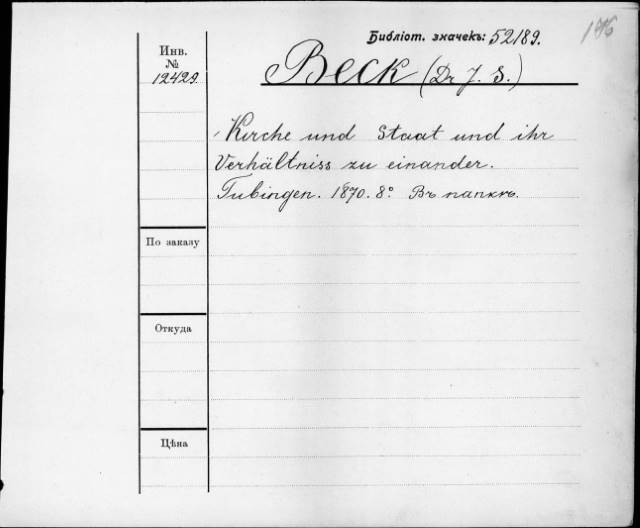 Библіот. значекъ: 52189.
196
Инв.
№
12429.
Beck (Dr J. S.)
Kirche und Staat und ihr
Verhältniss zu einander.
Tubingen. 1870. 8° Въ папкѣ.
По заказу
Откуда
Цѣна